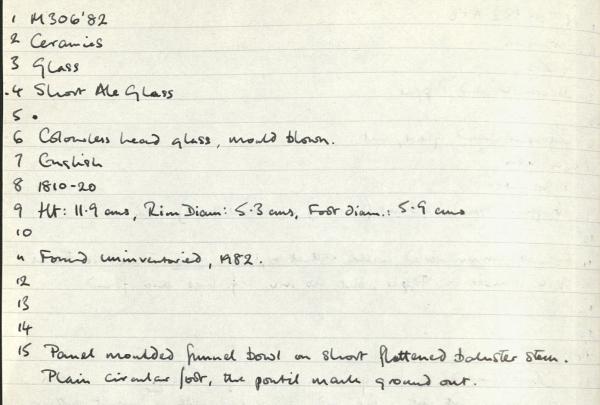 1 M306'82
2 Ceramics
3 Glass
4 Short Ale Glass
5 .
6 Colourless lead glass, mould blown.
7 English
8 1810-20
9 Ht: 11.9 cms, Rim Diam: 5.3 cms, Foot diam.: 5.9 cms
10
11 Found uninventoried, 1982.
12
13
14
15 Panel moulded funnel bowl on short flattened baluster stem.
Plain circular foot, the pontil mark ground out.